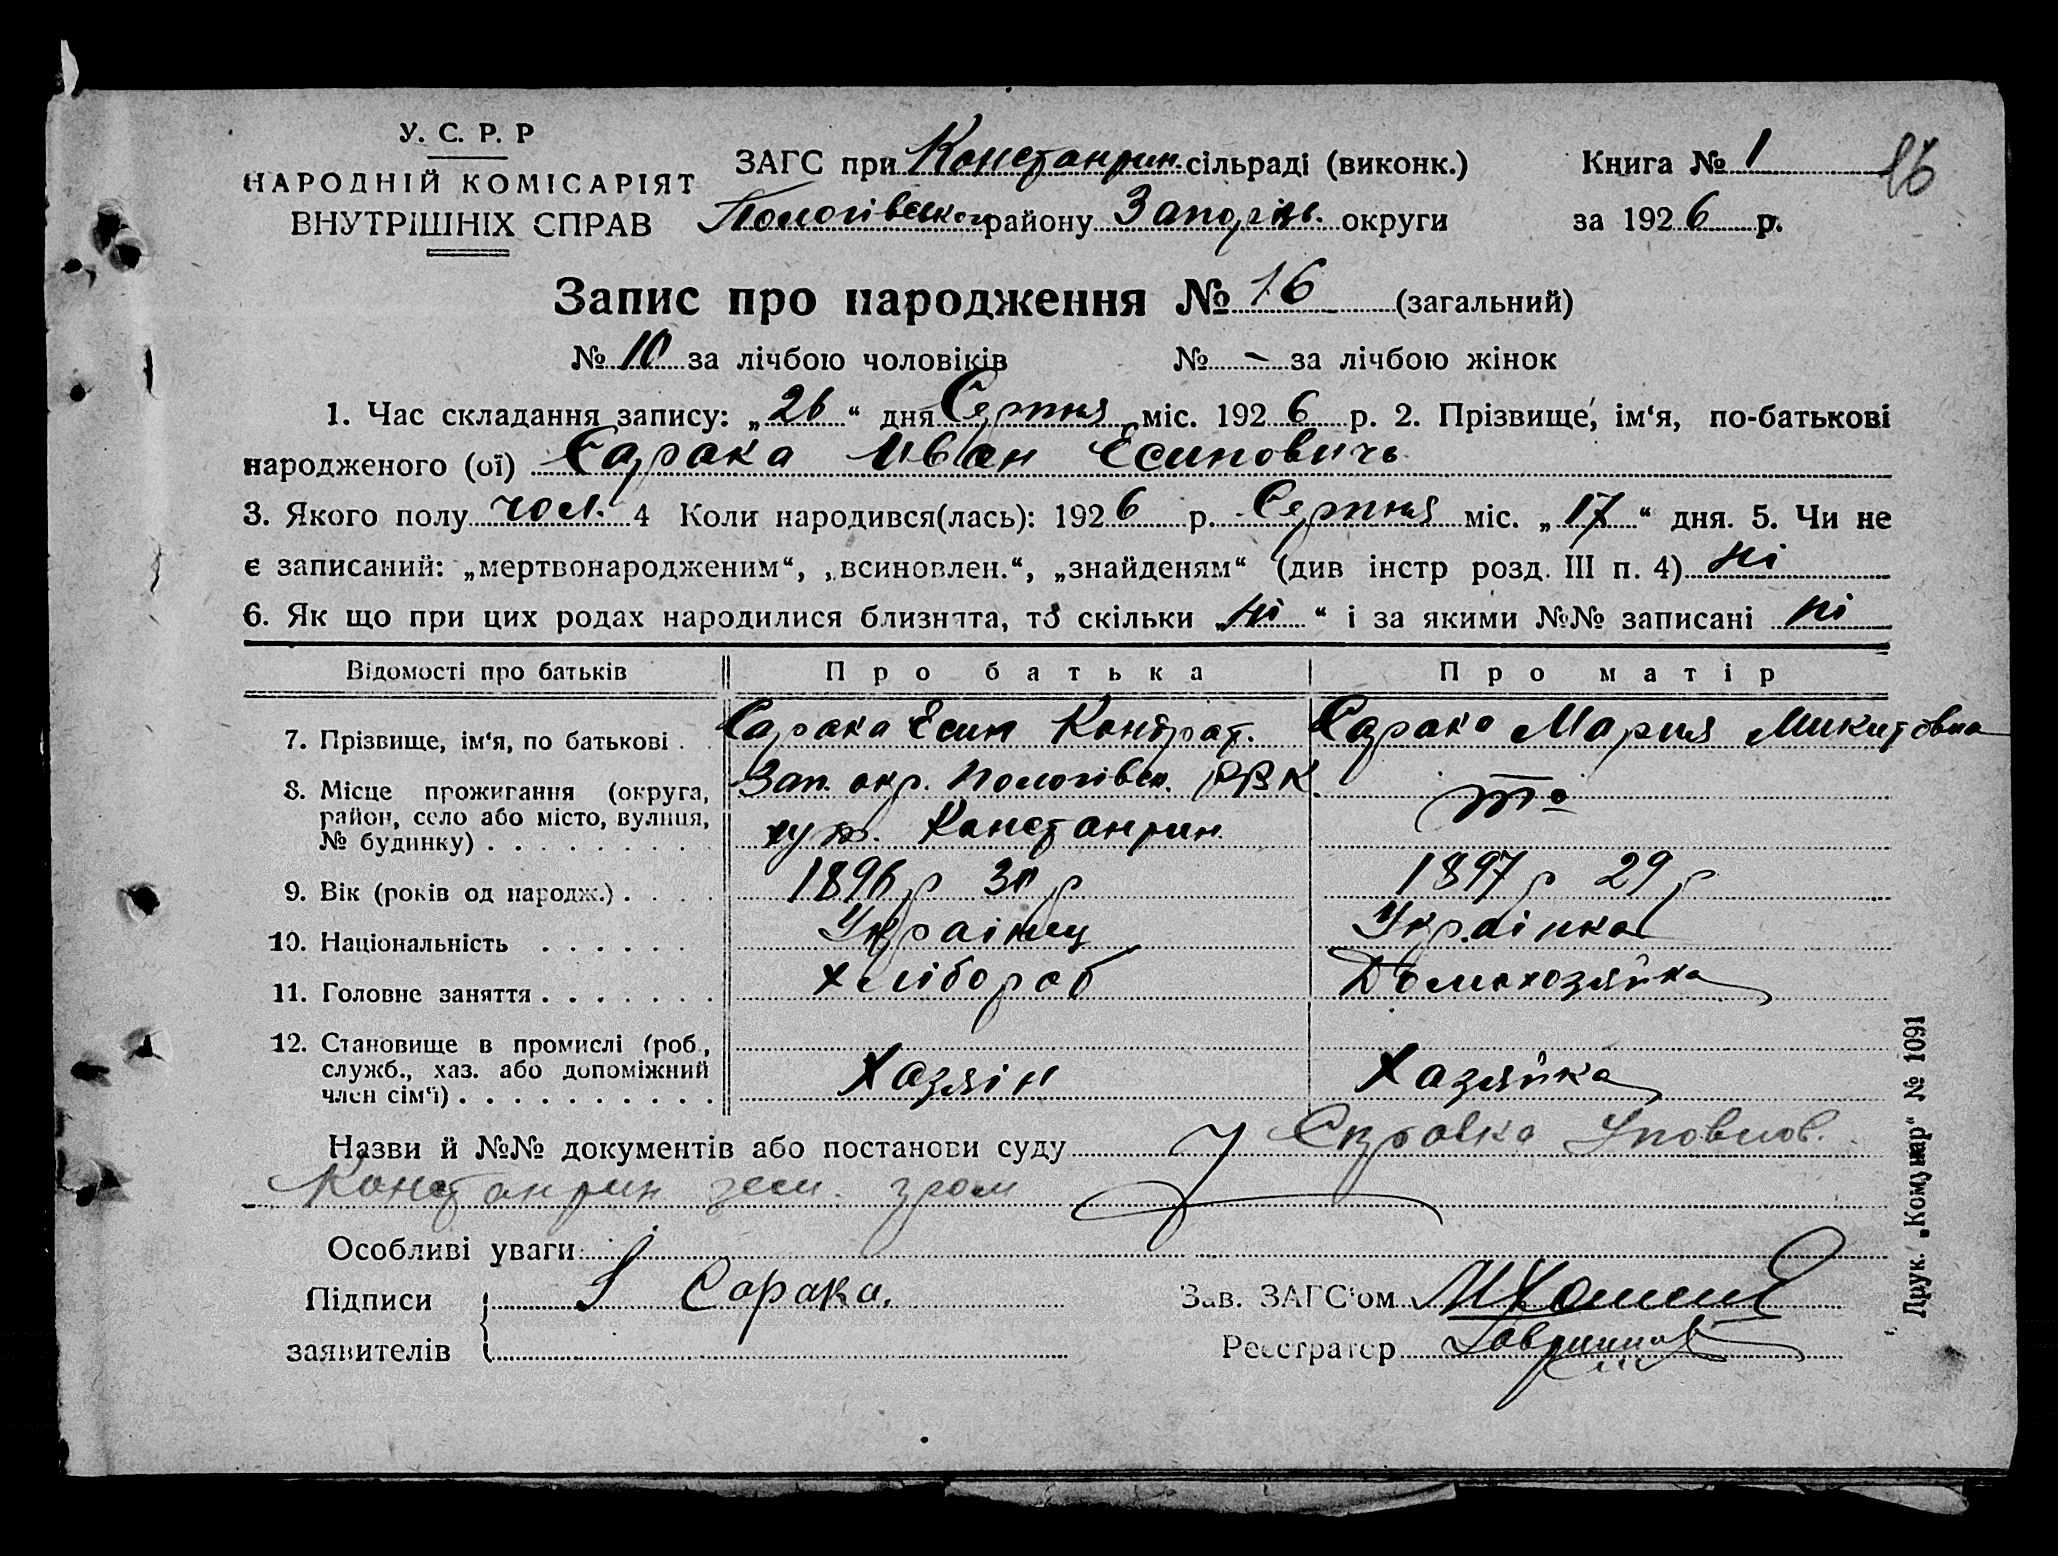 У. С. Р. Р
НАРОДНІЙ КОМІСАРІЯТ
ВНУТРІШНІХ СПРАВ
ЗАГС при Констанрин. сільраді (виконк.)
Книга № 1
16
Пологівськог району Запоріз. округи
за 1926 р.
Запис про народження № 16 (загальний)
№ 10 за лічбою чоловіків № - за лічбою жінок
1. Час складання запису: „26“ дня Серпня міс. 1926 р. 2. Прізвище, ім‘я, по-батькові
народженого (ої) Сарака Иван Есиповичь
3. Якого полу чол. 4 Коли народився(лась): 1926 р. Серпня міс. „17“ дня. 5. Чи не
є записаний: „мертвонародженим“, „всиновлен.“, „знайденям“ (див інстр розд. III п. 4) ні
6. Як що при цих родах народилися близнята, то скільки „ні“ і за якими №№ записані ні
Відомості про батьків Про батька Про матір
7. Прізвище, ім‘я, по батькові . . Сарака Есип Кондрат. Сарака Мария Микитовна
8. Місце прожигання (округа, район, село або місто, вулиця, № будинку) . . . . . . . . . Зап. окр. Пологівск. РВК. хут. Констанрин. то
9. Вік (років од народж.) . . . . 1896 р 30 р 1897 р 29 р
10. Національність . . . . . . Украінец Украінка
11. Головне заняття . . . . . . . хлібороб Домохозяйка
12. Становище в промислі (роб., служб., хаз. або допоміжний член сім‘ї) . . . . . . . . . . Хазяін Хазяйка
Назви й №№ документів або постанови суду Справка Уповнов.
Констанрин зем. гром
Особливі уваги
Підписи
заявителів
Сарака.
Зав. ЗАГС‘ом
Реєстратор
Друк. „Комунар“ № 1091